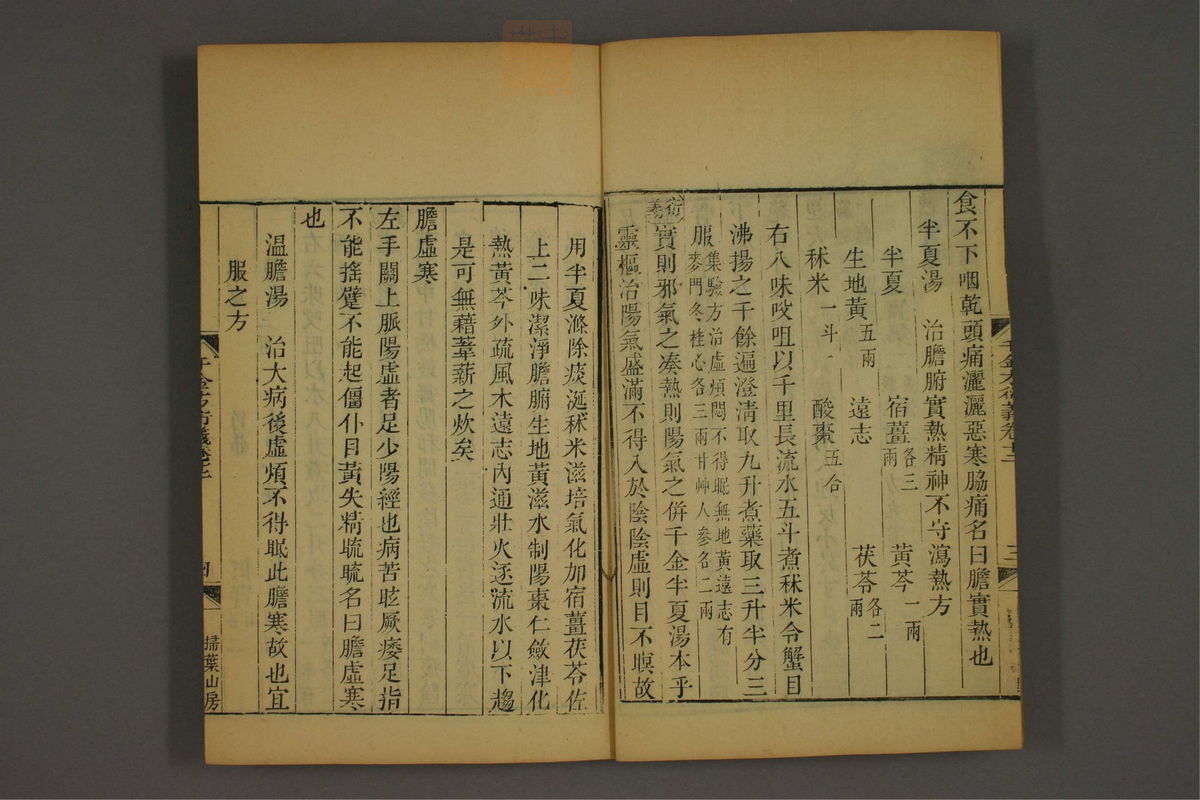 食不下咽乾頭痛灑灑惡寒脇痛名曰膽實熱也
半夏湯 治膽腑實熱精神不守瀉熱方
半夏 宿薑各三兩 黃芩一兩
生地黃五兩 遠志 茯苓各二兩
秫米一斗 酸棗五合
右八味㕮咀以千里長流水五斗煮秫米令蟹目
沸揚之千餘遍澄清取九升煮藥取三升半分三
服集驗方治虛煩悶不得眠無地黃遠志有
麥門冬桂心各三兩甘艸人參各二兩
衍義實則邪氣之凑熱則陽氣之併千金半夏湯本乎
靈樞治陽氣盛滿不得入於陰陰虛則目不瞑故
用半夏滌除痰涎秫米滋培氣化加宿薑茯苓佐
上二味潔淨膽腑生地黃滋水制陽棗仁斂津化
熱黃芩外疏風木遠志內通壯火逐流水以下趨
是可無藉葦薪之炊矣
膽虛寒
左手關上脈陽虛者足少陽經也病苦眩厥痿足指
不能搖躄不能起僵仆目黃失精䀮䀮名曰膽虛寒
也
溫膽湯 治大病後虛煩不得眠此膽寒故也宜
服之方
掃葉山房